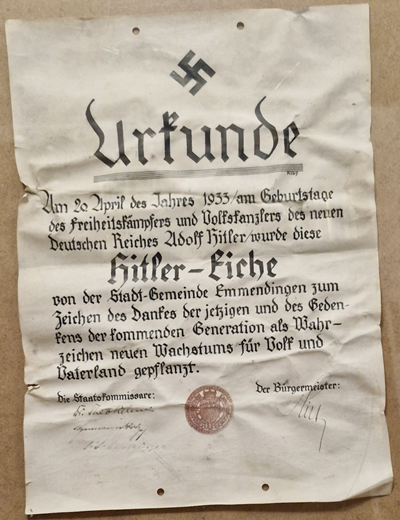 Urkunde
Am 20 April des Jahres 1933/am Geburtstage
des Freiheitskämpfers und Volkskanzlers des neuen
Deutschen Reiches Adolf Hitler/wurde diese
Hitler-Eiche
von der Stadt-Gemeinde Emmendingen zum
Zeichen des Dankes der jetzigen und des Geden-
kens der kommenden Generation als Wahr-
zeichen neuen Wachstums für Volk und
Vaterland gepflanzt.
Die Staatskommissare:
Der Bürgermeister: